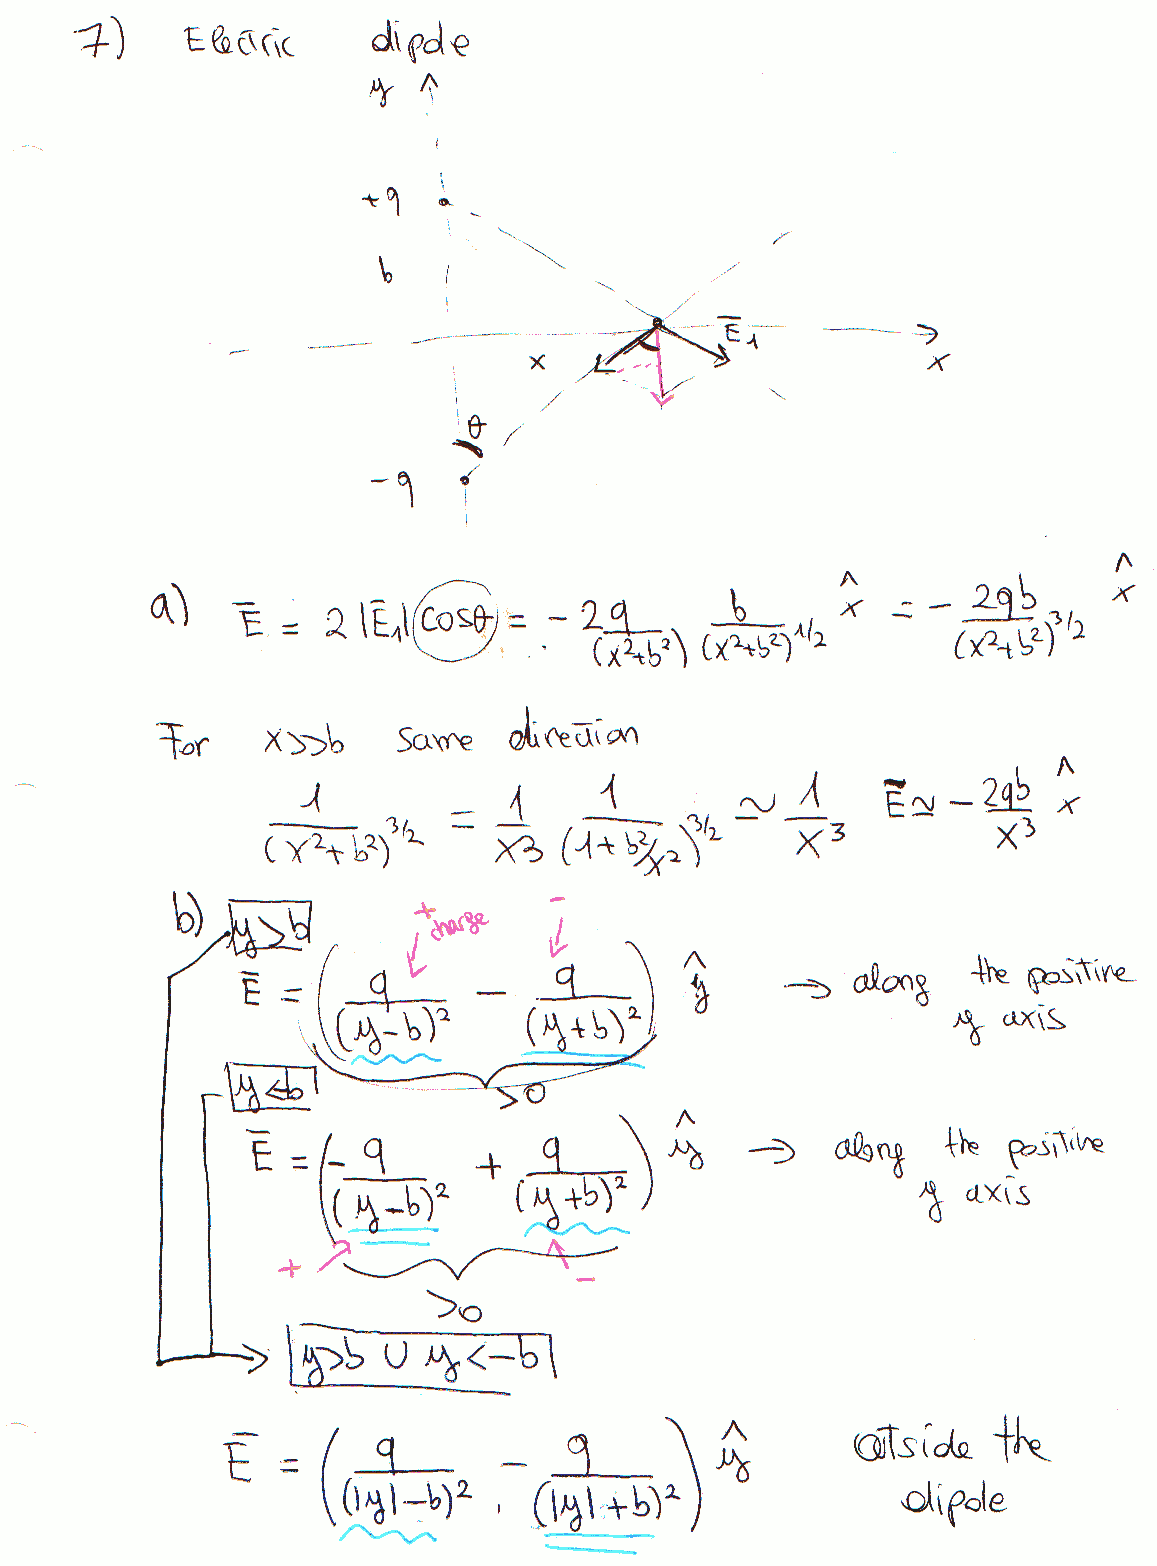 7) Electric dipole
y
+q
b
E̅₁
x
x
θ
-q
a) E̅ = 2 |E̅₁| cosθ = - 2q/(x²+b²) b/(x²+b²)^1/2 x̂ = - 2qb/(x²+b²)^3/2 x̂
For x>>b same direction
1/(x²+b²)^3/2 = 1/x³ 1/(1+b²/x²)^3/2 ≃ 1/x³ E̅ ≃ - 2qb/x³ x̂
b) y>b
+ charge
-
E̅ = ( q/(y-b)² - q/(y+b)² ) ŷ → along the positive
y axis
>0
y<b
E̅ = ( - q/(y-b)² + q/(y+b)² ) ŷ → along the positive
y axis
+ -
>0
y>b ∪ y<-b
E̅ = ( q/(|y|-b)² - q/(|y|+b)² ) ŷ outside the
dipole